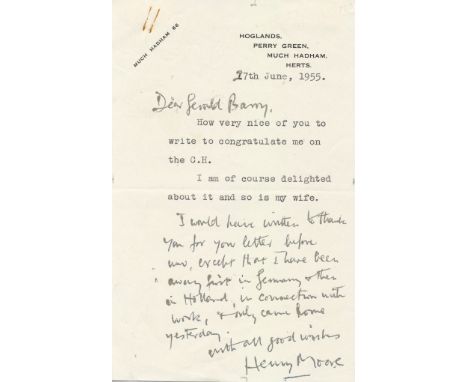 MUCH HADHAM 66
HOGLANDS,
PERRY GREEN,
MUCH HADHAM,
HERTS.
27th June, 1955.
Dear Gerald Barry,
How very nice of you to
write to congratulate me on
the C.H.
I am of course delighted
about it and so is my wife.
I would have written to thank
you for your letter before
now, except that I have been
away first in Germany & then
in Holland, in connection with
work, & only came home
yesterday.
with all good wishes
Henry Moore